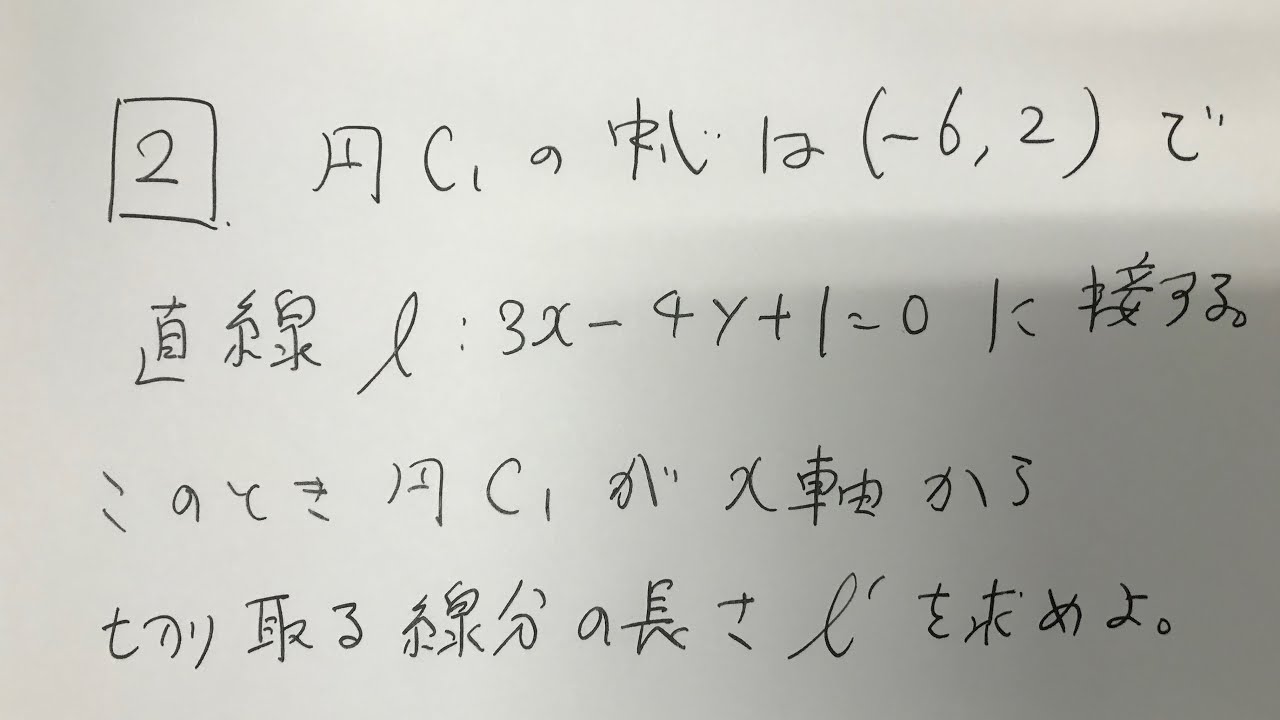 2. 円C₁の中心は(-6,2)で
直線 ℓ:3x-4y+1=0に接する。
このとき円C₁がx軸から
切り取る線分の長さℓ'を求めよ。